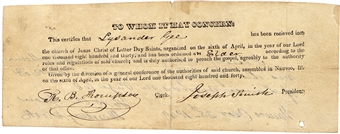 TO WHOM IT MAY CONCERN:
This certifies that Lysander Gee has been received into
the church of Jesus Christ of Latter Day Saints, organized on the sixth of April, in the year of our Lord
one thousand eight hundred and thirty; and has been ordained an Elder according to the
rules and regulations of said church; and is duly authorised to preach the gospel, agreeably to the authority
of that office.
Given by the direction of a general conference of the authorities of said church, assembled in Nauvoo, Ill.
on the sixth of April, in the year of our Lord one thousand eight hundred and forty.
R. B. Thompson Clerk Joseph Smith President